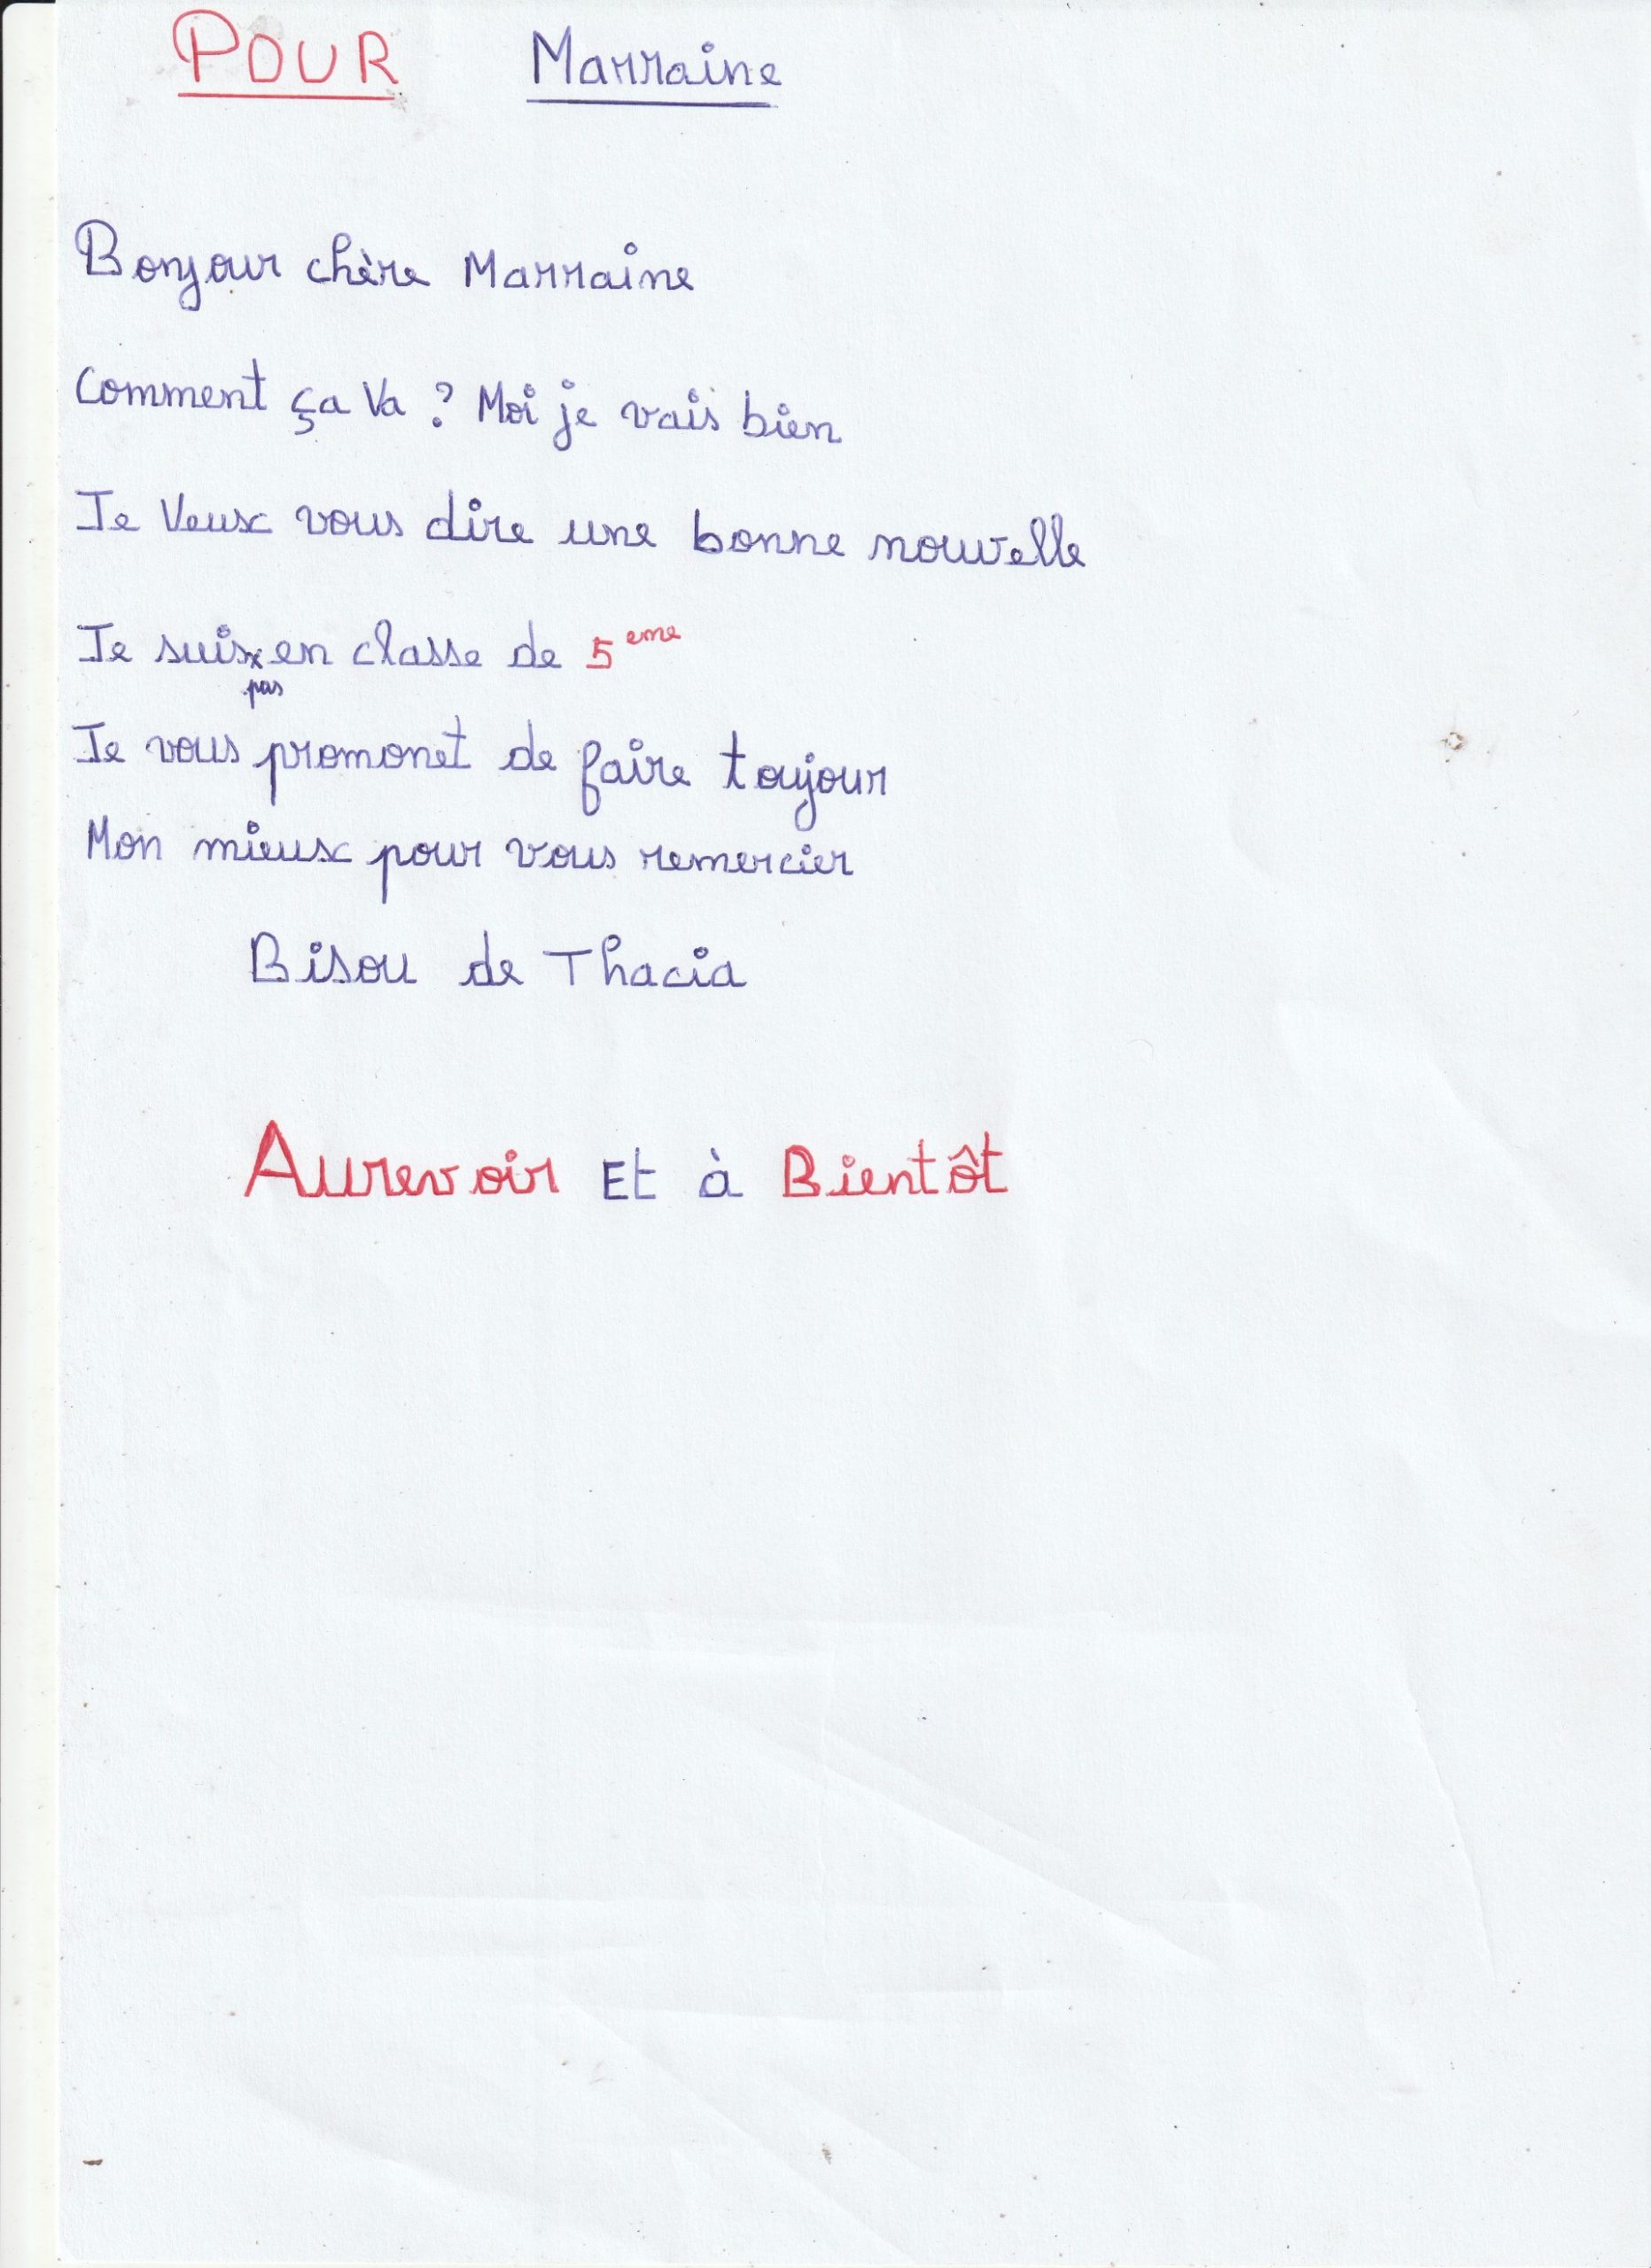 POUR Marraine
Bonjour chère Marraine
Comment ça Va ? Moi je vais bien
Je Veux vous dire une bonne nouvelle
Je suis x en classe de 5 eme
pas
Je vous promonet de faire toujour
Mon mieux pour vous remercier
Bisou de Thacia
Aurevoir Et à Bientôt